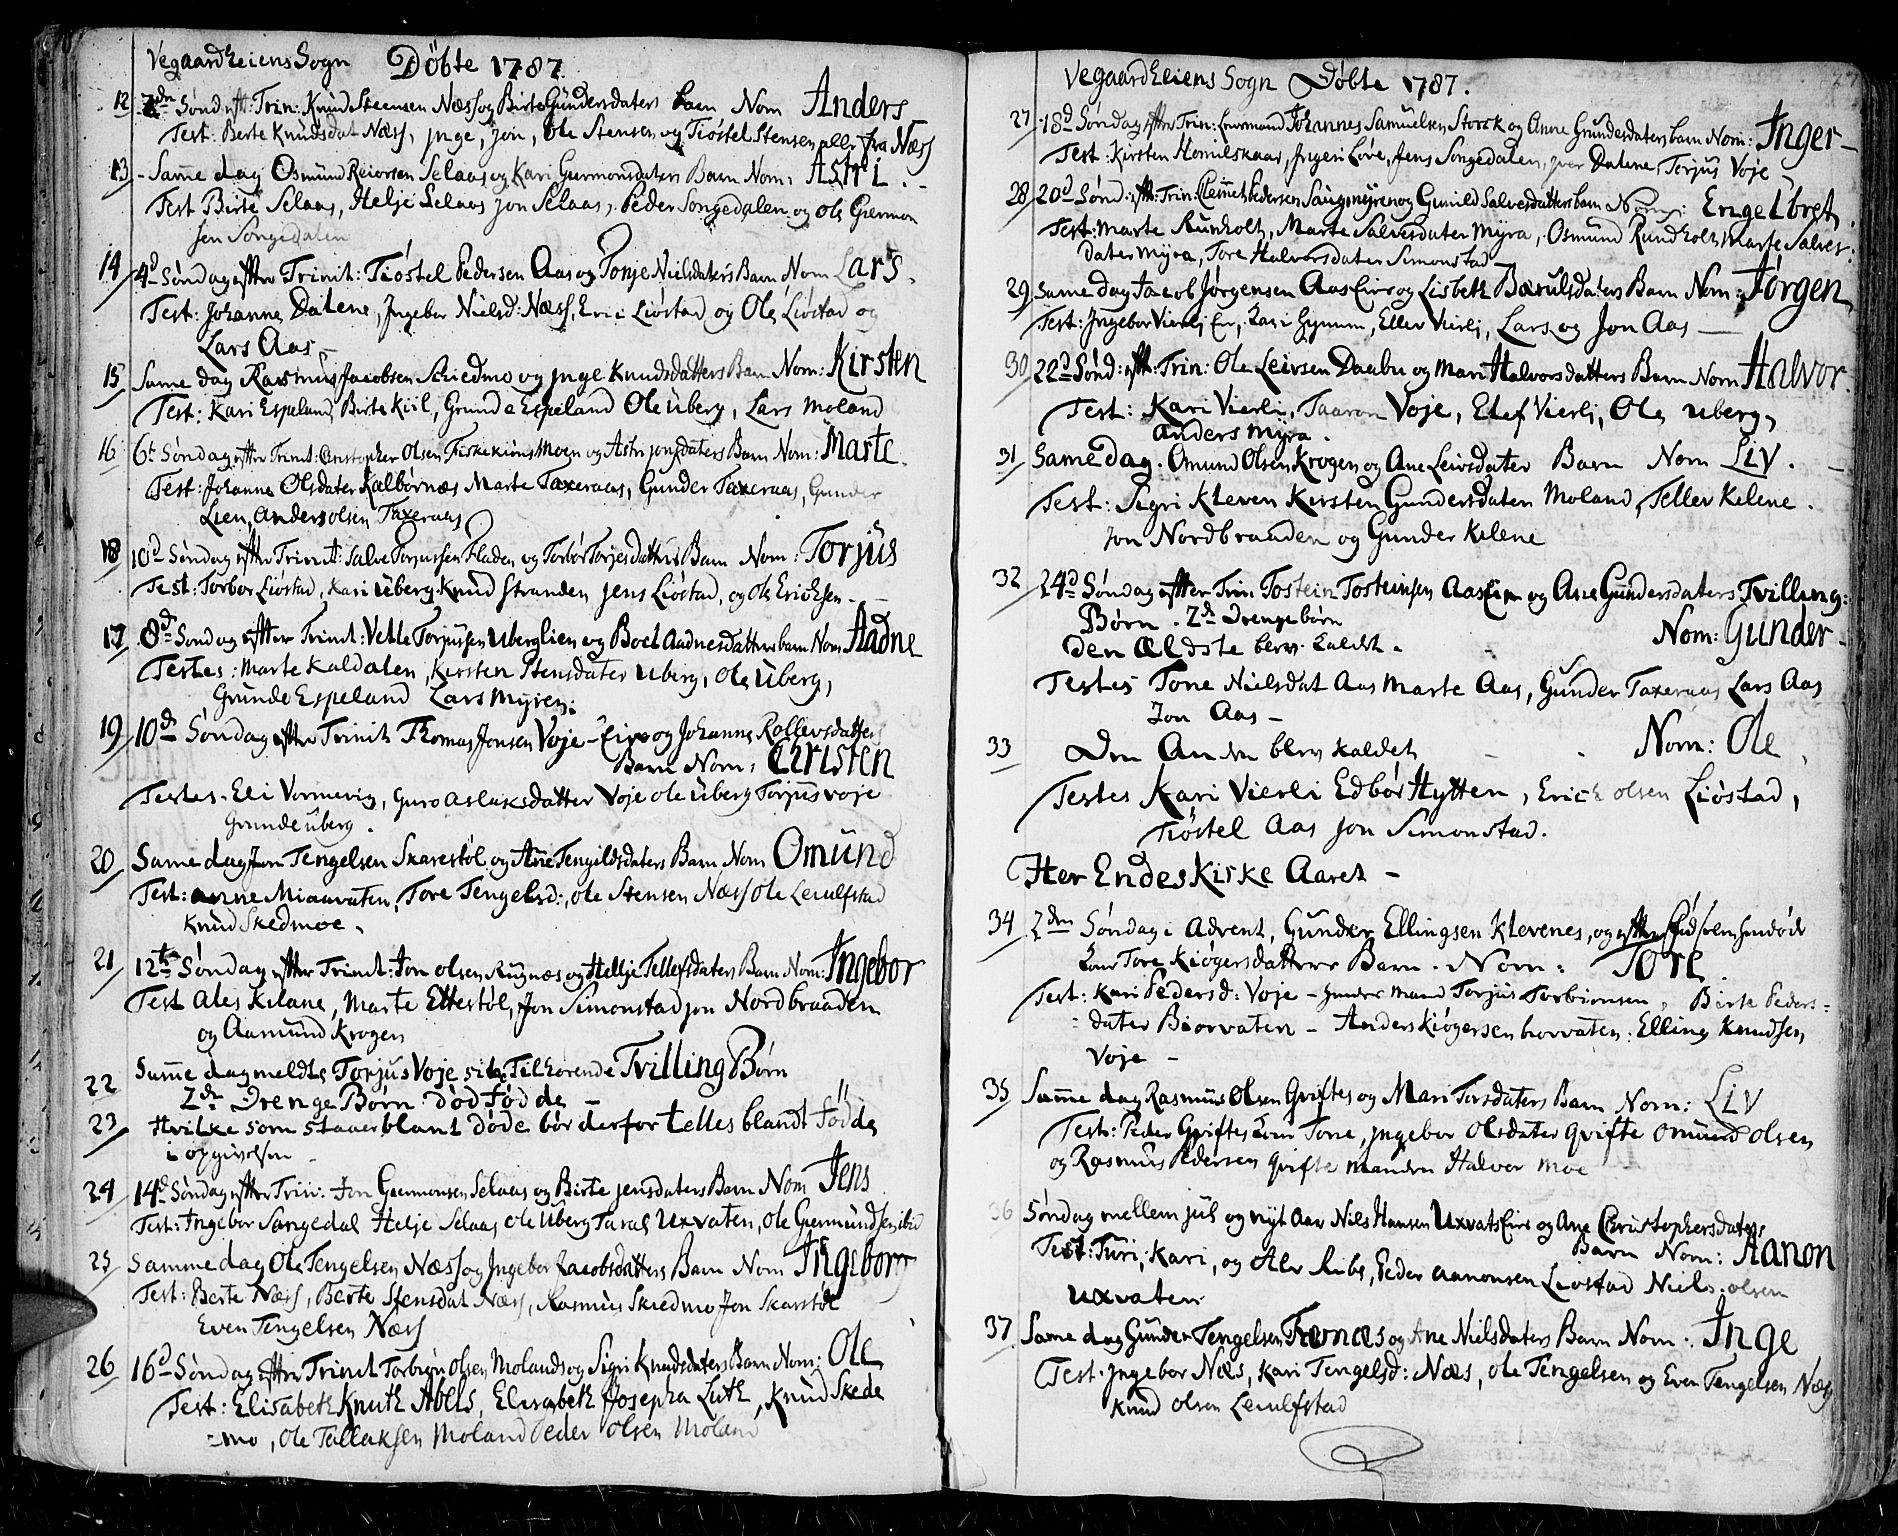 Vegaardzeiens Sogn Döbte 1787.
12 2dn Sønd eft: Trin: Knud Steensen Næss og Birte Gundersdaters barn Nom Anders
Test: Berte Knudsdat Næss, Jnge, Jon, Ole Stensen og Tiøstel Stensen alle fra Næss
13 Same dag Osmund Reiorsen Selaas og Kari Germonsdaters Barn Nom: Astri.
Test Birte Selaas, Helje Selaas Jon Selaas, Peder Songedalen og Ole Giermon
sen Songedalen
14 4d Søndag efter Trinit: Tiøstel Pedersen Aas og Tonje Neilsdaters Barn Nom Lars.
Test: Johanne Dalene, Jngebor Nielsd: Næss, Eric Liøstad og Ole Liøstad og
Lars Aas
15 Same dag Rasmus Jacobsen Schedmo og Jnge Knudsdatters Barn Nom: Kirsten
Test: Kari Espeland, Birte Kiil, Grunde Espeland Ole Uberg, Lars Moland
16 6t Søndag efter Trinit: Christopher Olsen Fiskekiøns Moen og Astri Jonsdaters Barn Nom: Marte.
Test: Johanne Olsdater Kalbørnæs Marte Taxeraas, Gunder Taxeraas, Gunder
Lien, Anders olsen Taxeraas
18 10d Søndag efter Trinit: Salve Torjussen Fladen og Torbor Torjesdatters Barn Nom: Torjus
Test: Torbor Liøstad, Kari Uberg Knud Stranden Jens Liøstad, og Ole Ericksen.
17 8d Søndag efter Trinit: Vetle Torjussen Uberglien og Boel Aadnesdatters barn Nom Aadne
Testes: Marte Kaldalen, Kirsten Stensdater Uberg, Ole Uberg,
Grunde Espeland Lars Myren.
19 10d Søndag efter Trinit Thomas Jensen Voje-Eie og Johanne Rollevsdatters
Barn Nom: Christen
Testes. Eli Vormevig, Guro Aslaksdatter Voje Ole Uberg Torjus Voje
Grunde Uberg.
20 Same dag Jon Tengelsen Skarestøl og Anne Tengildsdaters Barn Nom Omund
Test: Anne Miaavaten, Tore Tengelsd:, Ole Stensen Næss Ole Leulfstad
Knud Skedmoe.
21 12te Søndag efter Trinit: Jon olsen Rugnæs og Hellje Tellefsdaters Barn Nom: Jngebor
Test Ales Kilane, Marte Ettestøl, Jon Simonstad Jon Nordbraaden
og Aamund Krogen
22 Samme dag meldte Torjus Voje sine Tilhørende Tvilling Børn
2de Drenge Børn dødfødde
23 Hvilke som staaer blant døde bør derfor telles blandt fødde
i opgivelsen
24 14d Søndag efter Trin: Jon Germonsen Selaas og Birte Jensdaters Barn Nom Jens
Test: Jngebor Sangedal Helje Selaas Ole Uberg Taral Uxvaten, Ole Giermundsen ibid
25 Samme dag Ole Tengelsen Næss og Jngebor Jacobsdatters Barn Nom Jngeborg
Test: Berte Næss, Berte Stensdat Næss, Rasmus Skiedmo Jon Skarstøl
Even Tengelsen Næss
26 16d Søndag efter Trinit Torbiørn olsen Molands og Sigri Knudsdaters Barn Nom: Ole
Test: Elisabeth Knuth Abels, Elisabeth Josepha Luth, Knud Skede
mo, Ole Tallaksen Moland Peder Olsen Moland
Vegaardzeiens Sogn Døbte 1787.
27 18d Søndag efter Trin: Johannes Samuelsen Storck og Anne Gundersdaters barn Nom: Inger
Test: Kirsten Homilskaar, Jngeri Løve, Jens Songedalen, Dalene, Torjus Voje
28 20d Sønd: eft: Trin: Clemet Pedersen Saugmyren og Gunild Salvesdatters barn Nom: Engelbret
Test: Marte Runholt, Marte Salvesdater Myra, Osmund Rundholt, Marte Salves:
dater Myra, Tore Halvorsdater Simonstad
29 Same dag Jacob Jørgensen Aas Eie og Lisbeth Bærulsdaters Barn Nom: Jørgen
Test: Jngebor Vierli Eie, Kari Gyrum, Ellev Vierli, Lars og Jon Aas
30 22d Sønd: eft: Trin: Ole Leivsen Daabu og Mari Halvorsdatters Barn Nom Halvor.
Test: Kari Vierli, Taaron Voje, Elef Vierli, Ole Uberg,
Anders Myra.
31 Same dag. Omund Olsen Krogen og Ane Leivsdater Barn Nom Liv.
Test: Sigri Kleven Kirsten Gundersdaten Moland, Tellev Kelene.
Jon Nordbraaden og Gunder Kelene
32 24d Søndag efter Trin Tostein Tosteinsen Aas Eie og Ane Gundersdaters Tvilling:
Børn. 2de Drengebørn
Den Ældste blev kaldt. Nom: Gunder
Testes Tone Nielsdat Aas Marte Aas, Gunder Taxeraas Lars Aas
Jon Aas
33 Den Anden blev kaldet Nom: Ole
Testes Kari Vierli Edbor Hytten, Erick olsen Liøstad,
Tiøstel Aas Jon Simonstad.
Her Endes Kirke Aaret
34 2den Søndag i Advent, Gunder Ellingsen Klevenes, og efter
Tore Kiøgersdatters Barn. Nom: Tore.
Test: Kari Pedersd: Voje Torjus Torbiønsen, Birte Peders
dater Biorvaten Anders Kiøgersen borvaten: Elling Knudsen
Voje
35 Samme dag Rasmus Olsen Gviftes og Mari Torsdaters Barn Nom: Liv
Test: Peder Gviftes Tone, Jngebor Olsdater Gvifte Omund Olsen
og Rasmus Pedersen Gvifte Halvor Moe
36 Søndag mellem Jul og nyt Aar Niels Hansen Uxvats Eie og Ane Christophersdaters
Barn Nom: Aanon
Test: Turi, Kari, og Peder Aanonsen Liøstad Niels olsen
Uxvaten
37 Same dag Gunder Tengelsen Furnæs og Ane Nielsdaters Barn Nom: Jnge
Test. Jngebor Næs, Kari Tengelsd: Næs, Ole Tengelsen og Even Tengelsen Næs
Knud Olsen Leulfstad